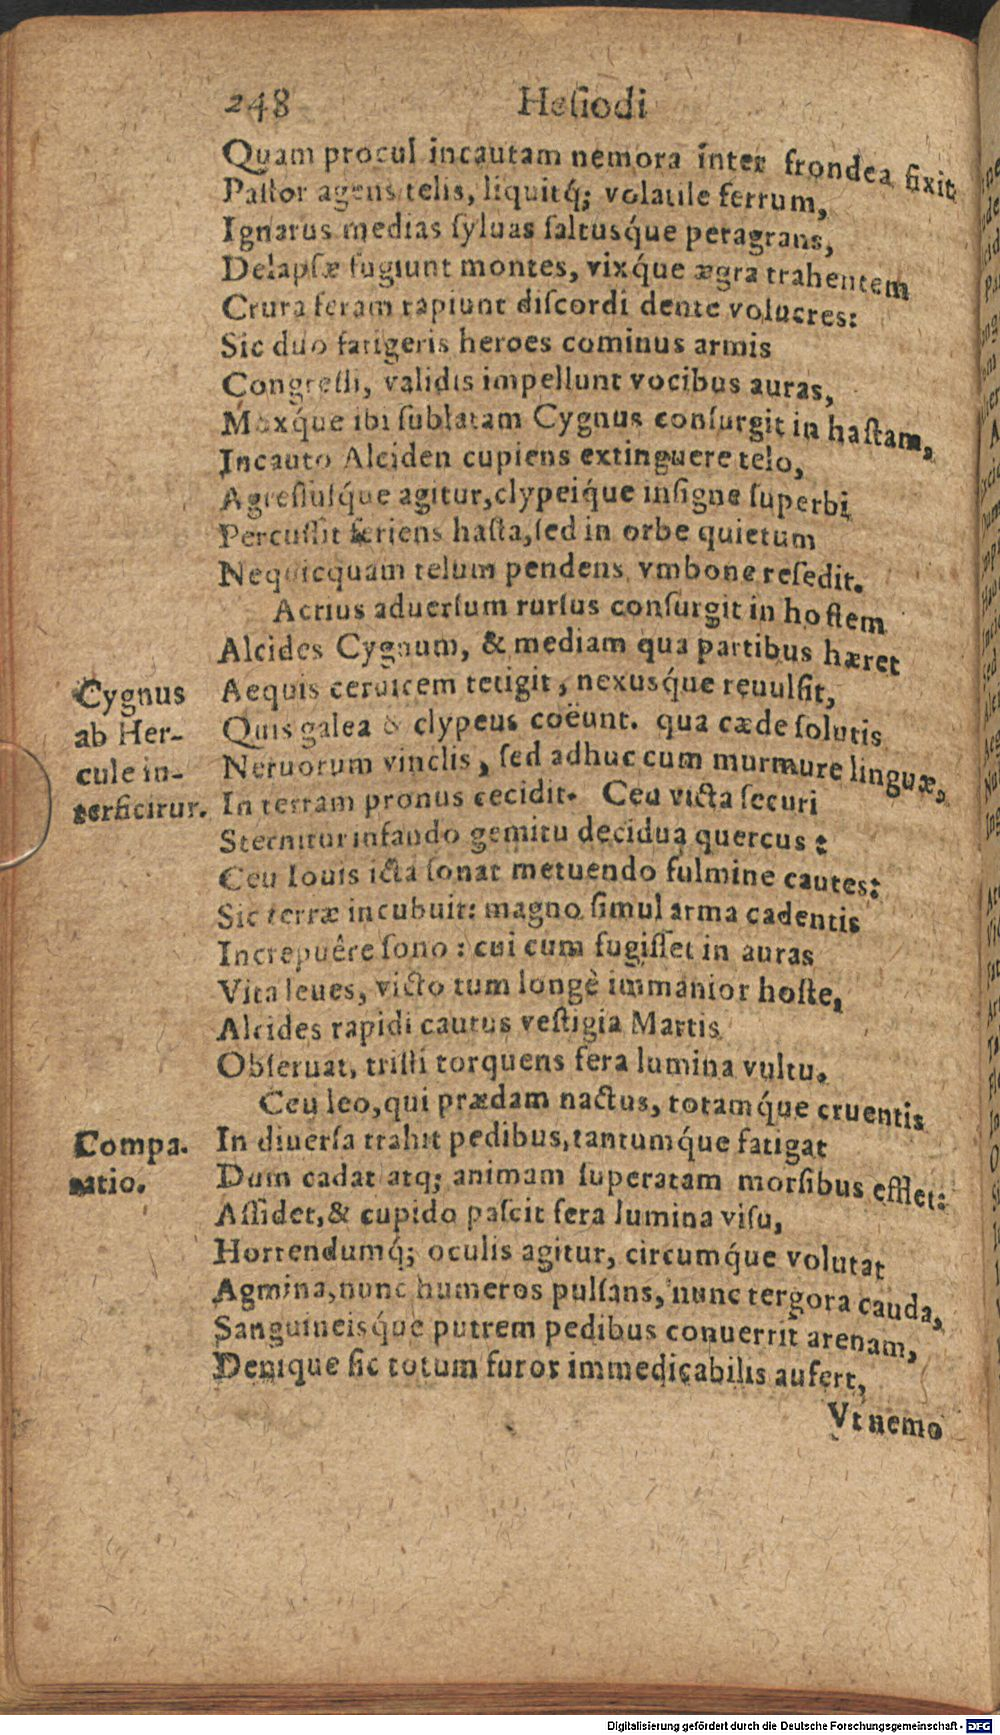 248 Hesiodi
Quam procul incautam nemora inter frondea fixit
Pastor agens telis, liquitq́; volatile ferrum,
Ignarus medias syluas saltusq́ue peragrans,
Delapsæ fugiunt montes, vixq́ue ægra trahentem
Crura feram rapiunt discordi dente volucres:
Sic duo fatigeris heroes cominus armis
Congressi, validis impellunt vocibus auras,
Moxq́ue ibi sublatam Cygnus consurgit in hastam,
Incauto Alciden cupiens extinguere telo,
Agressusq́ue agitur, clypeiq́ue insigne superbi
Percussit feriens hasta, sed in orbe quietum
Nequicquam telum pendens vmbone resedit.
Acrius aduersum rursus consurgit in hostem
Alcides Cygnum, & mediam qua partibus hæret
Cygnus
ab Her-
cule in-
terficitur.
Aequis ceruicem tetigit, nexusq́ue reuulsit,
Quis galea & clypeus coëunt. qua cæde solutis
Neruorum vinclis, sed adhuc cum murmure linguæ,
In terram pronus cecidit. Ceu victa securi
Sternitur infando gemitu decidua quercus:
Ceu Iouis icta sonat metuendo fulmine cautes:
Sic terræ incubuit: magno simul arma cadentis
Increpuêre sono: cui cum fugisset in auras
Vita leues, victo tum longè immanior hoste,
Alcides rapidi cautus vestigia Martis
Obseruat, tristi torquens fera lumina vultu.
Ceu leo, qui prædam nactus, totamq́ue cruentis
Compa.
ratio.
In diuersa trahit pedibus, tantumq́ue fatigat
Dum cadat atq; animam superatam morsibus efflet:
Assidet, & cupido pascit fera lumina visu,
Horrendumq́; oculis agitur, circumq́ue volutat
Agmina, nunc humeros pulsans, nunc tergora cauda,
Sanguineisq́ue putrem pedibus conuerrit arenam,
Denique sic totum furor immedicabilis aufert,
Vt nemo
Digitalisierung gefördert durch die Deutsche Forschungsgemeinschaft - DFG